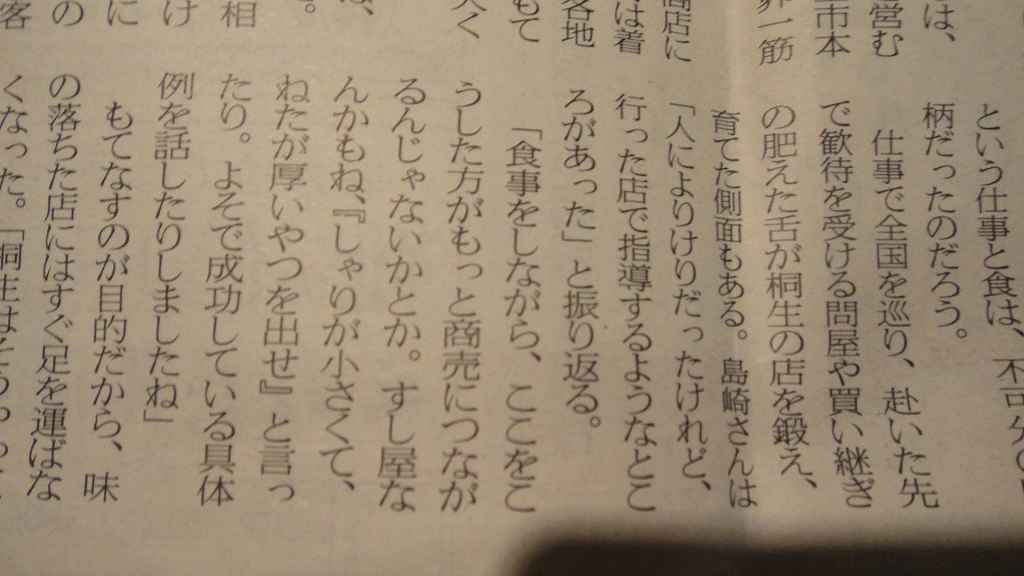 は、
営む
市本
一筋
商店に
は着
各地
もて
く
は、
。
相
け
に
の
客
という仕事と食は、不可分の
柄だったのだろう。
仕事で全国を巡り、赴いた先
で歓待を受ける問屋や買い継ぎ
の肥えた舌が桐生の店を鍛え、
育てた側面もある。島崎さんは
「人によりけりだったけれど、
行った店で指導するようなとこ
ろがあった」と振り返る。
「食事をしながら、ここをこ
うした方がもっと商売につなが
るんじゃないかとか。すし屋な
んかもね、『しゃりが小さくて、
ねたが厚いやつを出せ』と言っ
たり。よそで成功している具体
例を話したりしましたね」
もてなすのが目的だから、味
の落ちた店にはすぐ足を運ばな
くなった。「桐生はそうやって